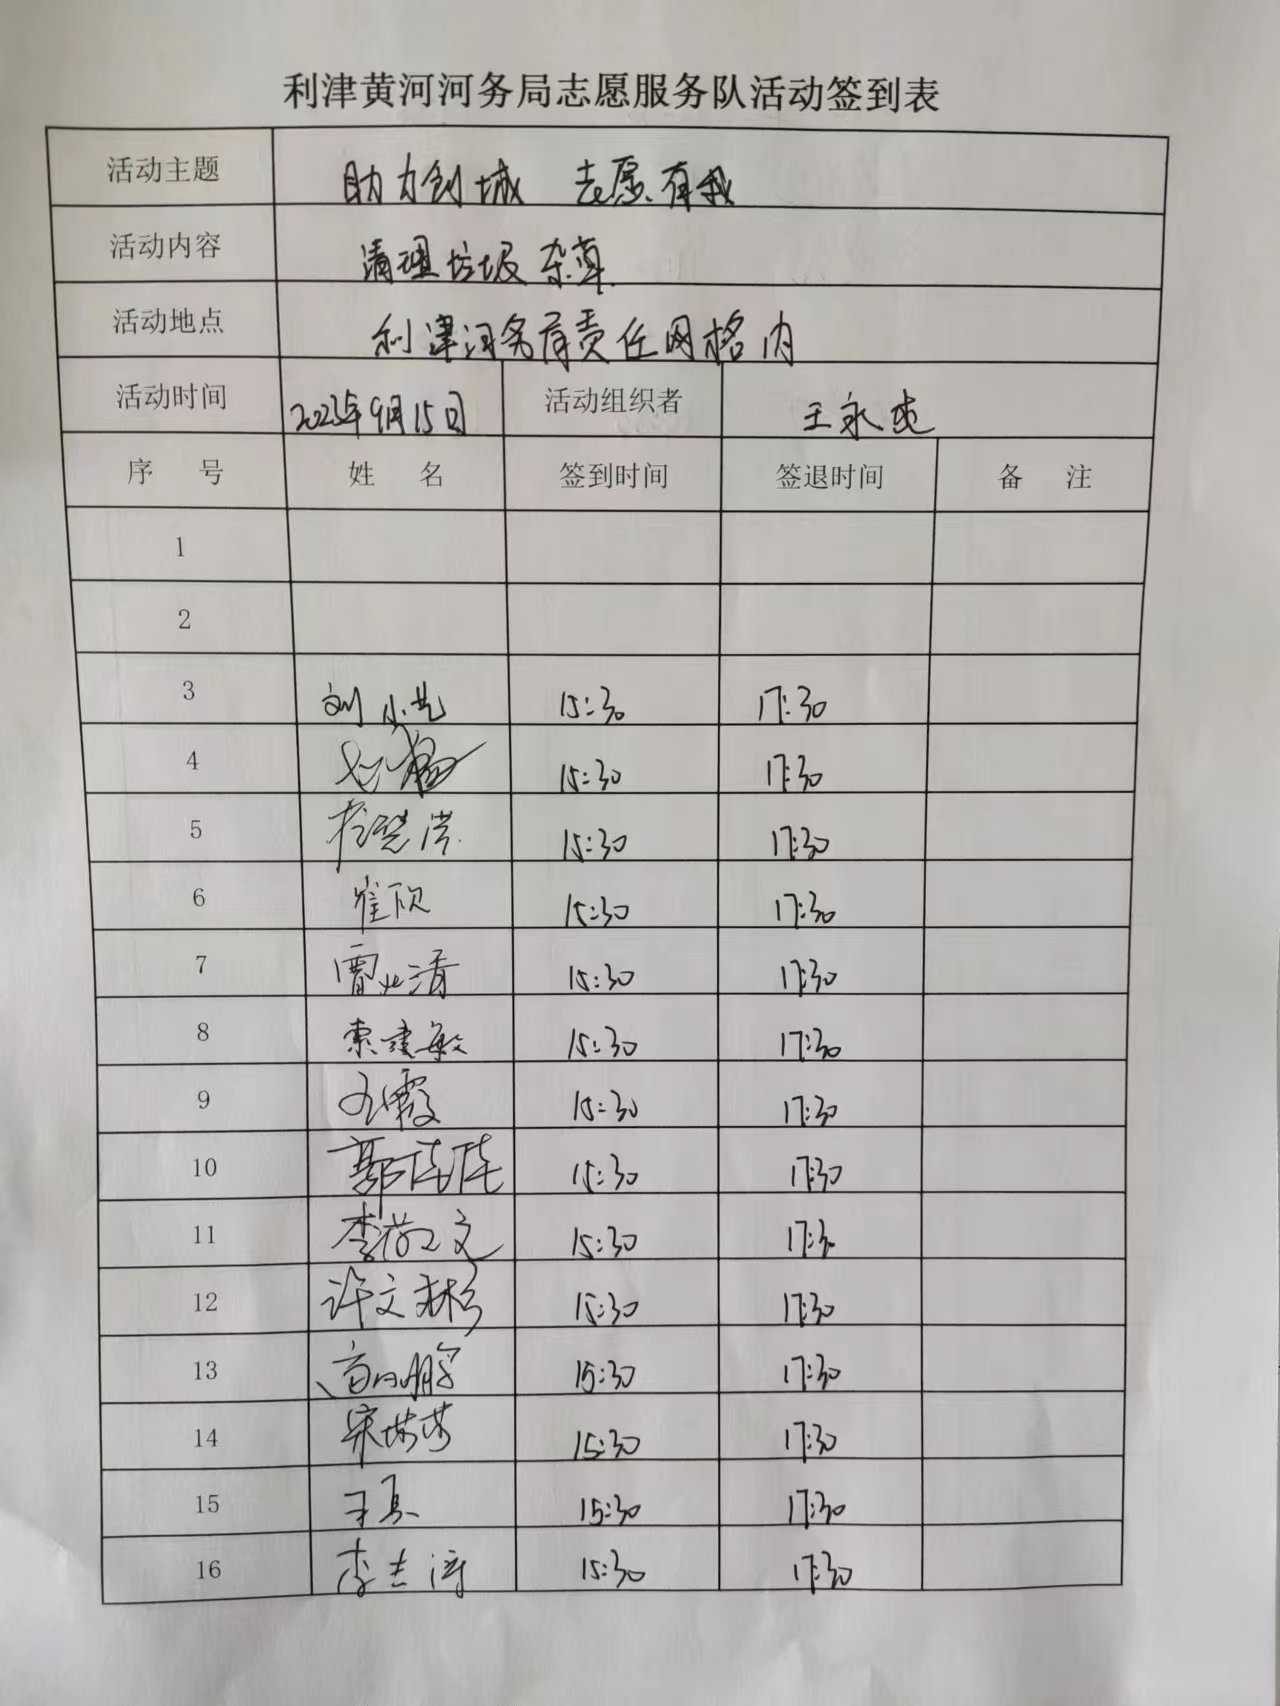 利津黄河河务局志愿服务队活动签到表
活动主题 助力创城 志愿有我
活动内容 清理垃圾杂草
活动地点 利津河务局责任网格内
活动时间 2023年9月15日 活动组织者 王永
序 号 姓 名 签到时间 签退时间 备 注
1
2
3 刘小艺 15:30 17:30
4 15:30 17:30
5 15:30 17:30
6 崔欣 15:30 17:30
7 清 15:30 17:30
8 索建敏 15:30 17:30
9 霞 15:30 17:30
10 郭佳佳 15:30 17:30
11 李 文 15:30 17:30
12 许文彬 15:30 17:30
13 鹏 15:30 17:30
14 宋莎莎 15:30 17:30
15 15:30 17:30
16 李志涛 15:30 17:30